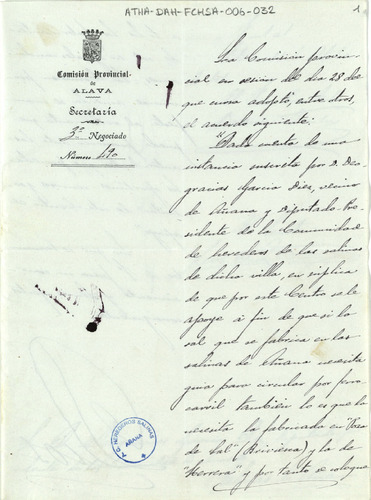 ATHA-DAH-FCHSA-006-032
1
Comisión Provincial
de
ALAVA
Secretaría
3º Negociado
Número 490
La Comisión provin-
cial en sesión del día 28 de
que cursa adoptó, entre otros,
el acuerdo siguiente:
"Dada cuenta de una
instancia suscrita por D. Deo-
gracias García Diez, vecino
de Añana y Diputado Pre-
sidente de la Comunidad
de herederos de las salinas
de dicha villa, en súplica
de que por este Centro se le
apoye á fin de que si la
sal que se fabrica en las
salinas de Añana necesita
guía para circular por ferro
carril también lo es que la
necesita la fabricada en "Poza
de Sal" (Briviesca) y la de
"Herrera" y por tanto se coloque
HEREDEROS SALINAS
AÑANA